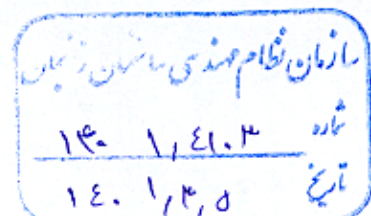 سازمان نظام مهندسی ساختمان زنجان
شماره ۱۴۰۱٫۴۱۰۳
تاریخ ۱۴۰۱٫۳٫۵